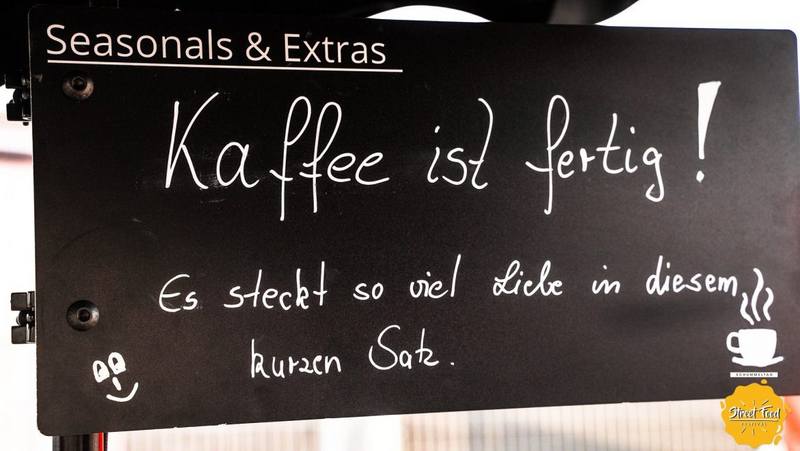 Seasonals & Extras
Kaffee ist fertig!
Es steckt so viel Liebe in diesem
kurzen Satz.
SCHUMMELTAG
Street Food
FESTIVAL